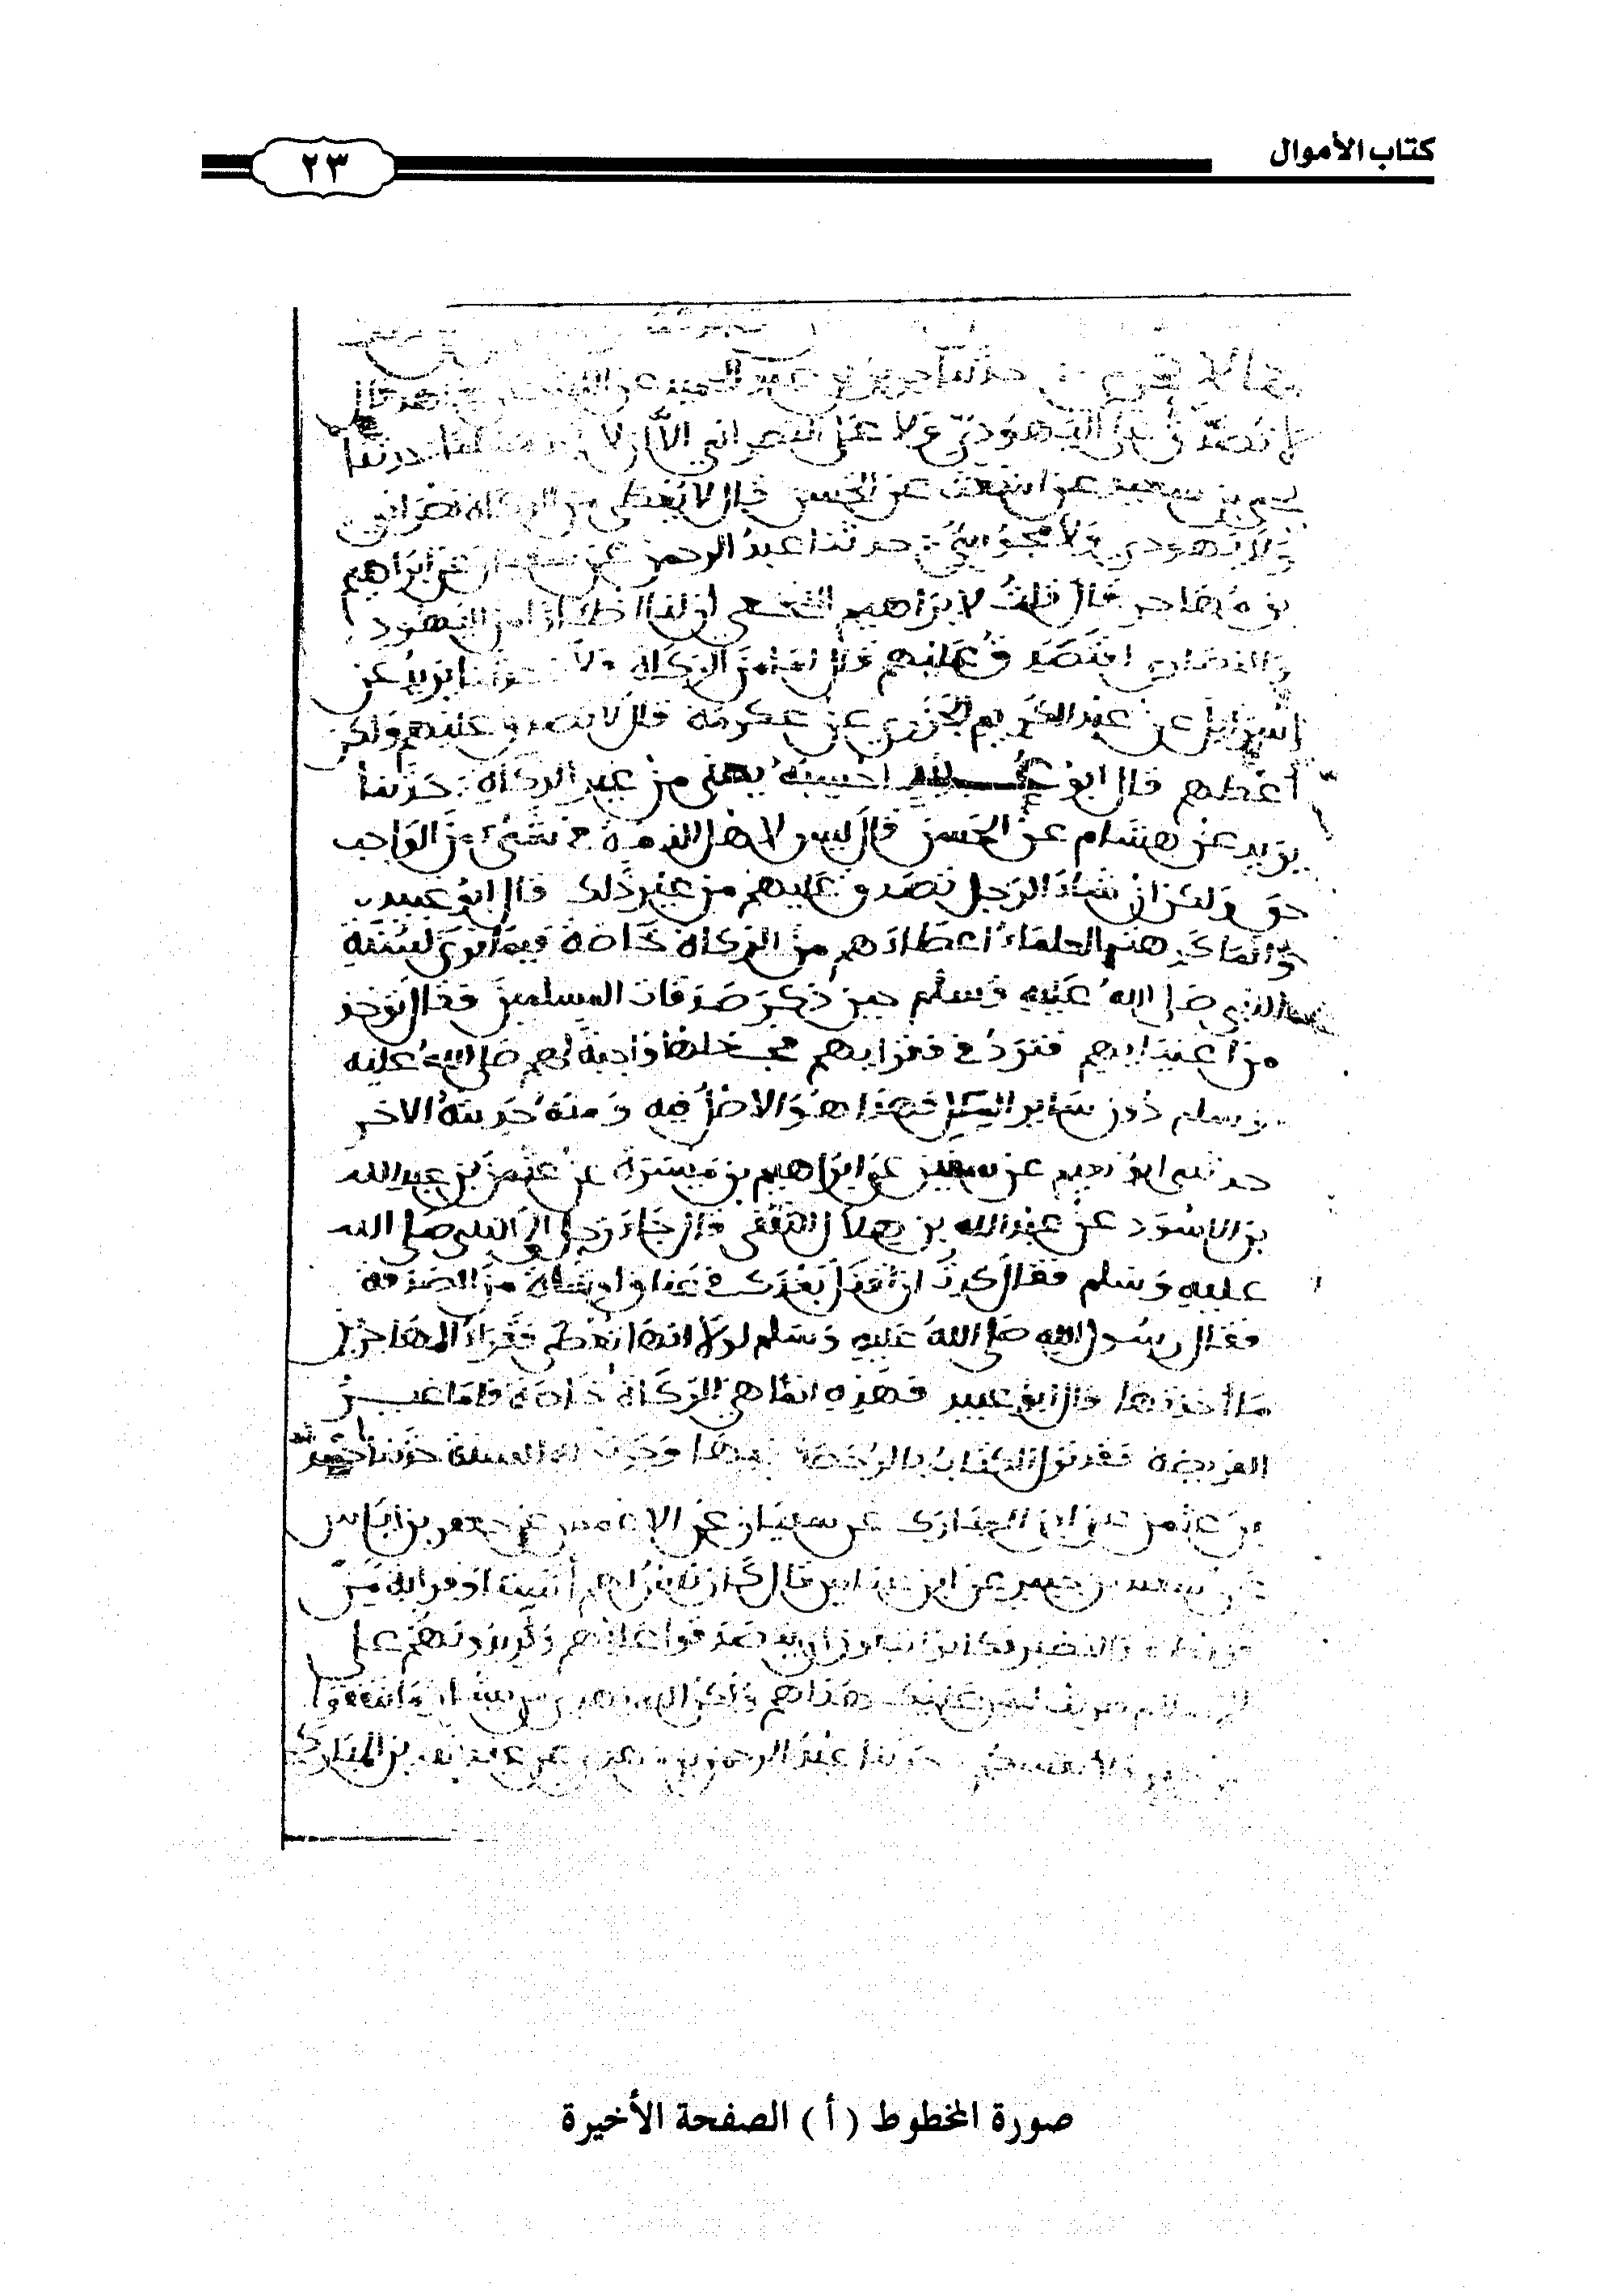 كتاب الأموال
٢٣
حدثنا جرير بن عبد الحميد عن
لا تصدق على اليهودي ولا على النصراني إلا أن لا تجد حدثنا
يحيى بن سعيد عن اشعث عن الحسن قال لا يعطى من الزكاة نصراني
ولا يهودي ولا مجوسي حدثنا عبد الرحمن عن سفيان عن ابراهيم
بن مهاجر قال قلت لابراهيم النخعي ان لنا اظارا من اليهود
والنصارى افنتصدق عليهم قال اما من الزكاة فلا حدثنا يزيد عن
اسرائيل عن عبد الكريم الجزري عن عكرمة قال لا تصدق عليهم ولكن
أعطهم قال ابو عبيد احسبه يعني من غير الزكاة حدثنا
يزيد عن هشام عن الحسن قال ليس لاهل الذمة في شيء من الواجب
حق ولكن ان شاء الرجل تصدق عليهم من غير ذلك قال ابو عبيد
وانما كره العلماء اعطاءهم من الزكاة خاصة فيما نرى لسنة
النبي صلى الله عليه وسلم حين ذكر صدقات المسلمين فقال تؤخذ
من أغنيائهم فترد في فقرائهم فجعلها واجبة لهم صلى الله عليه
وسلم دون سائر الملل فهذا هو الاصل فيه ومنه حديثه الاخر
حدثنيه ابو نعيم عن سفين عن ابراهيم بن ميسرة عن عثمن بن عبد الله
بن الاسود عن عبد الله بن هلال الثقفي قال جاء رجل الى النبي صلى الله
عليه وسلم فقال كدت ان أقتل بعدك في عناق او شاة من الصدقة
فقال رسول الله صلى الله عليه وسلم لولا انها تعطى فقراء المهاجرين
ما أخذتها قال ابو عبيد فهذه انما هي الزكاة خاصة فاما غير
الفريضة فقد نزل الكتاب بالرخصة فيها وجرت به السنة حدثنا
بن عثمن عن ابن المبارك عن سفيان عن الاعمش عن جعفر بن اياس
عن سعيد بن جبير عن ابن عباس قال كان ناس لهم أنسباء وقرابة من
قريظة والنضير فكانوا يتقون ان يتصدقوا عليهم ويريدونهم على
الاسلام فنزلت ليس عليك هداهم ولكن الله يهدي من يشاء وما تنفقوا
من خير فلانفسكم حدثنا عبد الرحمن بن مهدي عن عبد الله بن المبارك
صورة المخطوط (أ) الصفحة الأخيرة